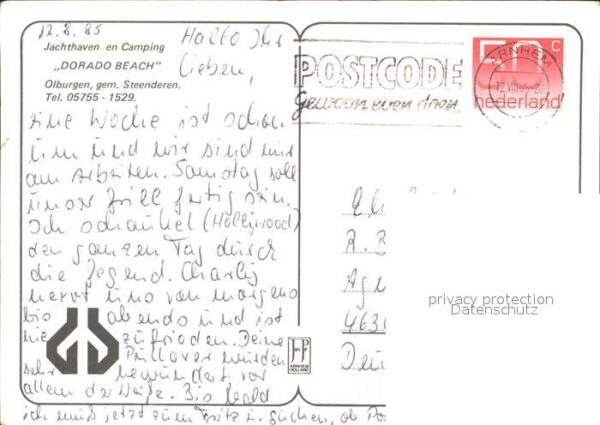 12.8.85
Jachthaven en Camping
„DORADO BEACH”
Olburgen, gem. Steenderen.
Tel. 05755 - 1529.
Hallo Ihr
Lieben,
eine Woche ist schon
um und wir sind nur
am Arbeiten. Samstag soll
unser Grill fertig sein.
Ich schaukel (Hollywood)
den ganzen Tag durch
die Gegend. Charly
nervt uns von morgens
bis abends und ist
nie zufrieden. Deine
Pullover wurden
sehr bewundert vor
allem der Weiße. Bis bald
ich muß jetzt zum Fritz u. suchen, ob
POSTCODE
gewoon even doen.
ARNHEM
50 c
nederland
R.
463
privacy protection
Datenschutz
JP
ARNHEM
HOLLAND